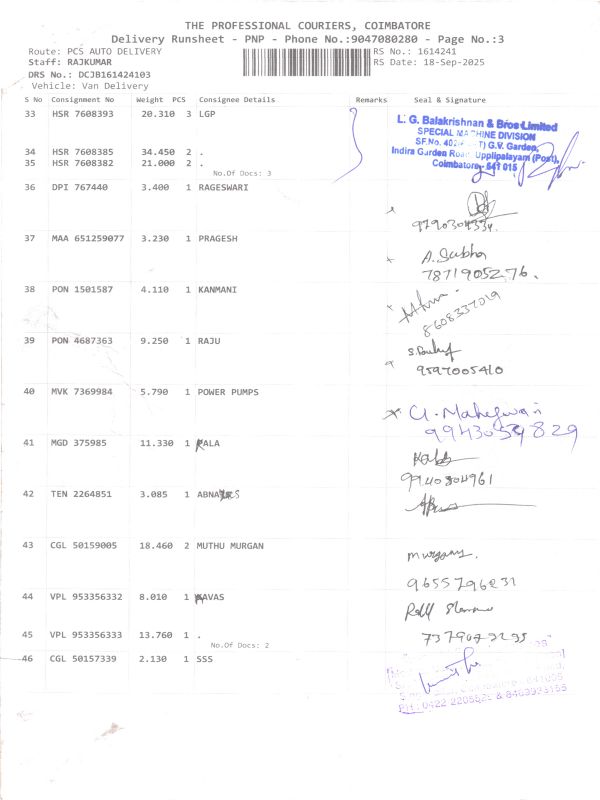 THE PROFESSIONAL COURIERS, COIMBATORE
Delivery Runsheet - PNP - Phone No.:9047080280 - Page No.:3
Route: PCS AUTO DELIVERY RS No.: 1614241
Staff: RAJKUMAR RS Date: 18-Sep-2025
DRS No.: DCJB161424103
Vehicle: Van Delivery
S No Consignment No Weight PCS Consignee Details Remarks Seal & Signature
33 HSR 7608393 20.310 3 LGP
L. G. Balakrishnan & Bros Limited
SPECIAL MACHINE DIVISION
G.V. Garden,
Indira Garden Road, Upplipalayam (Post),
Coimbatore - 641 015
34 HSR 7608385 34.450 2 .
35 HSR 7608382 21.000 2 .
No.Of Docs: 3
36 DPI 767440 3.400 1 RAGESWARI
37 MAA 651259077 3.230 1 PRAGESH
A. Subha
7871905276.
38 PON 1501587 4.110 1 KANMANI
8608337019
39 PON 4687363 9.250 1 RAJU
9597005410
40 MVK 7369984 5.790 1 POWER PUMPS
G. Maheswari
9943059829
41 MGD 375985 11.330 1 KALA
9940804961
42 TEN 2264851 3.085 1
43 CGL 50159005 18.460 2 MUTHU MURGAN
9655796231
44 VPL 953356332 8.010 1 KAVAS
45 VPL 953356333 13.760 1 .
No.Of Docs: 2
46 CGL 50157339 2.130 1 SSS